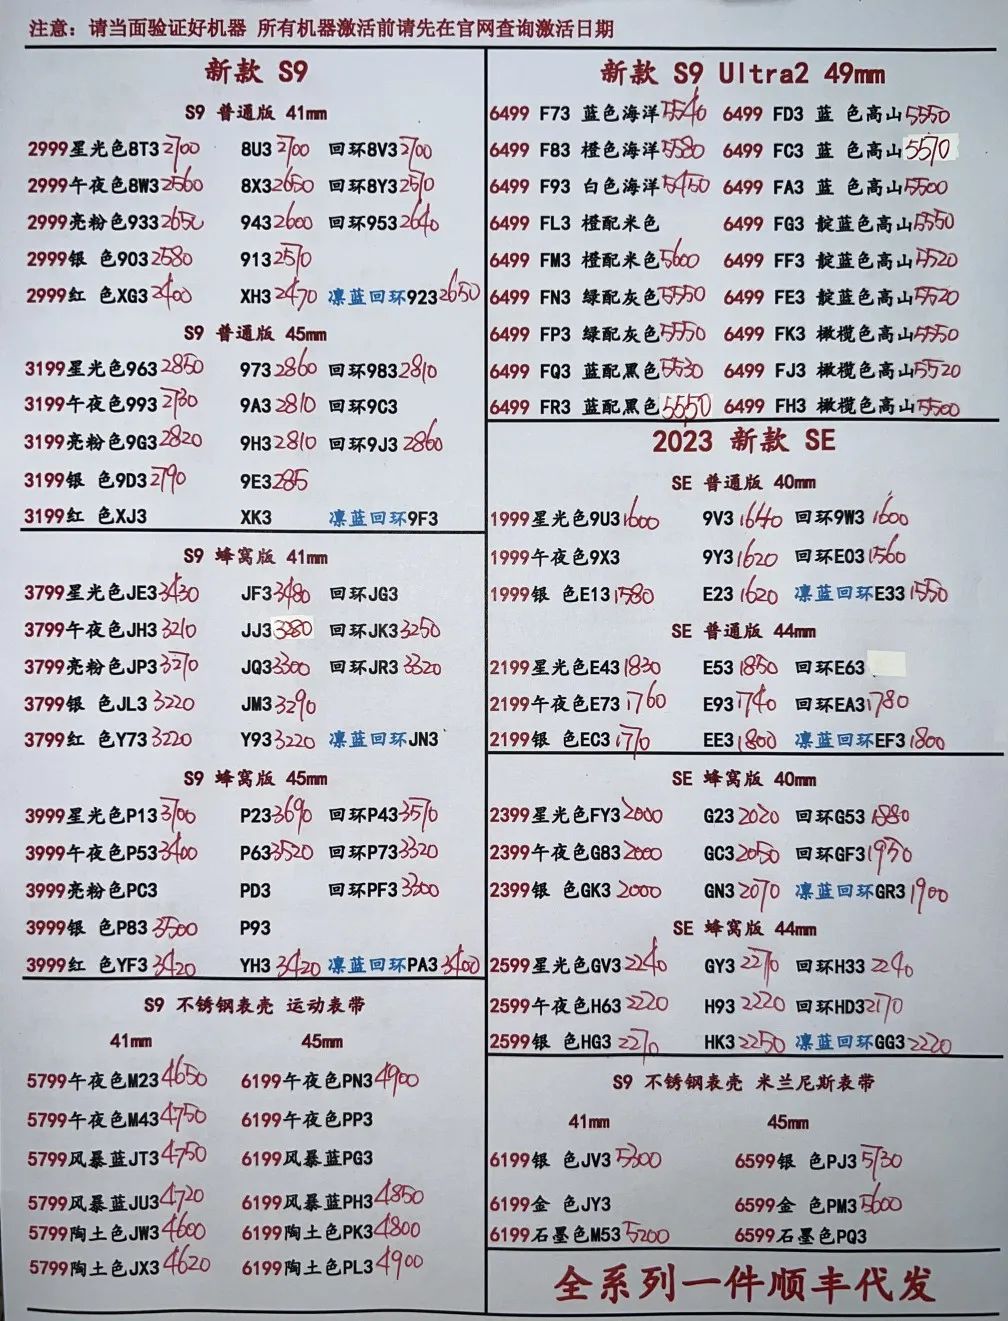 注意：请当面验证好机器 所有机器激活前请先在官网查询激活日期
新款 S9
S9 普通版 41mm
2999星光色8T3 2700 8U3 2700 回环8V3 2700
2999午夜色8W3 2560 8X3 2650 回环8Y3 2570
2999亮粉色933 2650 943 2600 回环953 2640
2999银 色903 2580 913 2570
2999红 色XG3 2400 XH3 2470 凛蓝回环923 2650
S9 普通版 45mm
3199星光色963 2850 973 2860 回环983 2810
3199午夜色993 2730 9A3 2810 回环9C3
3199亮粉色9G3 2820 9H3 2810 回环9J3 2860
3199银 色9D3 2790 9E3 285
3199红 色XJ3 XK3 凛蓝回环9F3
S9 蜂窝版 41mm
3799星光色JE3 3430 JF3 3480 回环JG3
3799午夜色JH3 3210 JJ3 3280 回环JK3 3250
3799亮粉色JP3 3270 JQ3 3300 回环JR3 3320
3799银 色JL3 3220 JM3 3290
3799红 色Y73 3220 Y93 3220 凛蓝回环JN3
S9 蜂窝版 45mm
3999星光色P13 3700 P23 3690 回环P43 3570
3999午夜色P53 3400 P63 3520 回环P73 3320
3999亮粉色PC3 PD3 回环PF3 3300
3999银 色P83 3500 P93
3999红 色YF3 3420 YH3 3420 凛蓝回环PA3 3400
S9 不锈钢表壳 运动表带
41mm 45mm
5799午夜色M23 4650 6199午夜色PN3 4900
5799午夜色M43 4750 6199午夜色PP3
5799风暴蓝JT3 4750 6199风暴蓝PG3
5799风暴蓝JU3 4720 6199风暴蓝PH3 4850
5799陶土色JW3 4600 6199陶土色PK3 4800
5799陶土色JX3 4620 6199陶土色PL3 4900
新款 S9 Ultra2 49mm
6499 F73 蓝色海洋 5540 6499 FD3 蓝 色高山 5550
6499 F83 橙色海洋 5580 6499 FC3 蓝 色高山 5570
6499 F93 白色海洋 5450 6499 FA3 蓝 色高山 5500
6499 FL3 橙配米色 6499 FG3 靛蓝色高山 5550
6499 FM3 橙配米色 5600 6499 FF3 靛蓝色高山 5520
6499 FN3 绿配灰色 5550 6499 FE3 靛蓝色高山 5520
6499 FP3 绿配灰色 5550 6499 FK3 橄榄色高山 5550
6499 FQ3 蓝配黑色 5530 6499 FJ3 橄榄色高山 5520
6499 FR3 蓝配黑色 5550 6499 FH3 橄榄色高山 5500
2023 新款 SE
SE 普通版 40mm
1999星光色9U3 1600 9V3 1640 回环9W3 1600
1999午夜色9X3 9Y3 1620 回环E03 1560
1999银 色E13 1580 E23 1620 凛蓝回环E33 1550
SE 普通版 44mm
2199星光色E43 1830 E53 1850 回环E63
2199午夜色E73 1760 E93 1740 回环EA3 1780
2199银 色EC3 1770 EE3 1800 凛蓝回环EF3 1800
SE 蜂窝版 40mm
2399星光色FY3 2000 G23 2020 回环G53 1880
2399午夜色G83 2000 GC3 2050 回环GF3 1950
2399银 色GK3 2000 GN3 2070 凛蓝回环GR3 1900
SE 蜂窝版 44mm
2599星光色GV3 2240 GY3 2270 回环H33 2240
2599午夜色H63 2220 H93 2220 回环HD3 2170
2599银 色HG3 2270 HK3 2250 凛蓝回环GG3 2220
S9 不锈钢表壳 米兰尼斯表带
41mm 45mm
6199银 色JV3 5300 6599银 色PJ3 5730
6199金 色JY3 6599金 色PM3 5600
6199石墨色M53 5200 6599石墨色PQ3
全系列一件顺丰代发